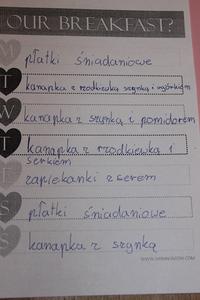 OUR BREAKFAST?
M płatki śniadaniowe
T kanapka z rzodkiewką szynką i ogórkiem
W kanapka z szynką z pomidorem
T kanapka z rzodkiewką i
serkiem
F zapiekanki z serem
S płatki śniadaniowe
S kanapka z szynką